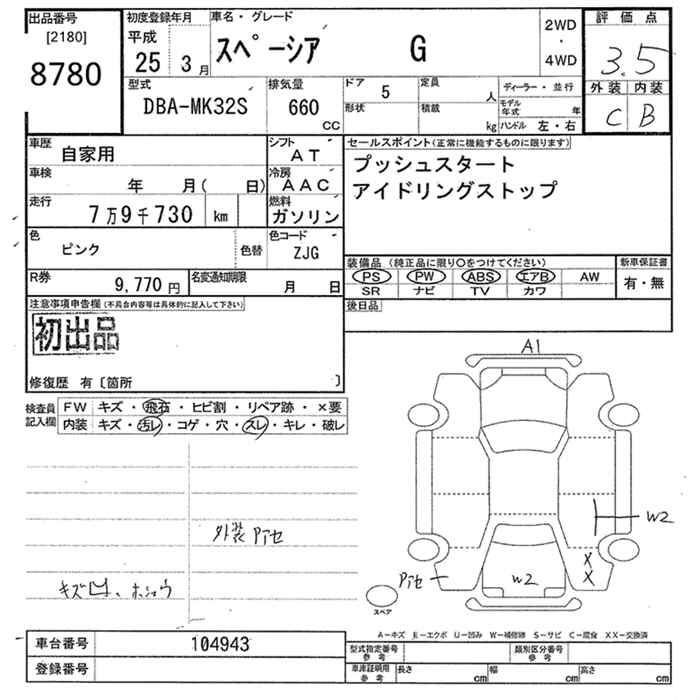 出品番号
[2180]
8780
初度登録年月
平成
25 3月
車名・グレード
スペーシア G
2WD
・
4WD
評価点
3.5
外装 内装
C B
型式
DBA-MK32S
排気量
660
cc
ドア 5
形状
定員 人
積載 kg
ディーラー・並行
モデル年式 年
ハンドル 左・右
車歴
自家用
シフト
AT
車検
年 月( 日)
冷房
AAC
走行
7万9千730 km
燃料
ガソリン
色
ピンク
色替
色コード
ZJG
R券
9,770円
名変通知期限
月 日
セールスポイント(正常に機能するものに限ります)
プッシュスタート
アイドリングストップ
装備品(純正品に限り〇をつけてください)
PS PW ABS エアB AW
SR ナビ TV カワ
新車保証書
有・無
後日品
注意事項申告欄(不具合内容等は具体的に記入して下さい)
初出品
修復歴 有〔箇所 〕
検査員記入欄
FW キズ・飛石・ヒビ割・リペア跡・×要
内装 キズ・汚レ・コゲ・穴・スレ・キレ・破レ
外装 Pアセ
キズ凹、ホショウ
A1
W2
X
X
W2
Pアセ
スペア
A-キズ E-エクボ U-凹み W-補修跡 S-サビ C-腐食 XX-交換済
車台番号
104943
登録番号
型式指定番号
参考
類別区分番号
参考
車庫証明用
参考
長さ cm
幅 cm
高さ cm